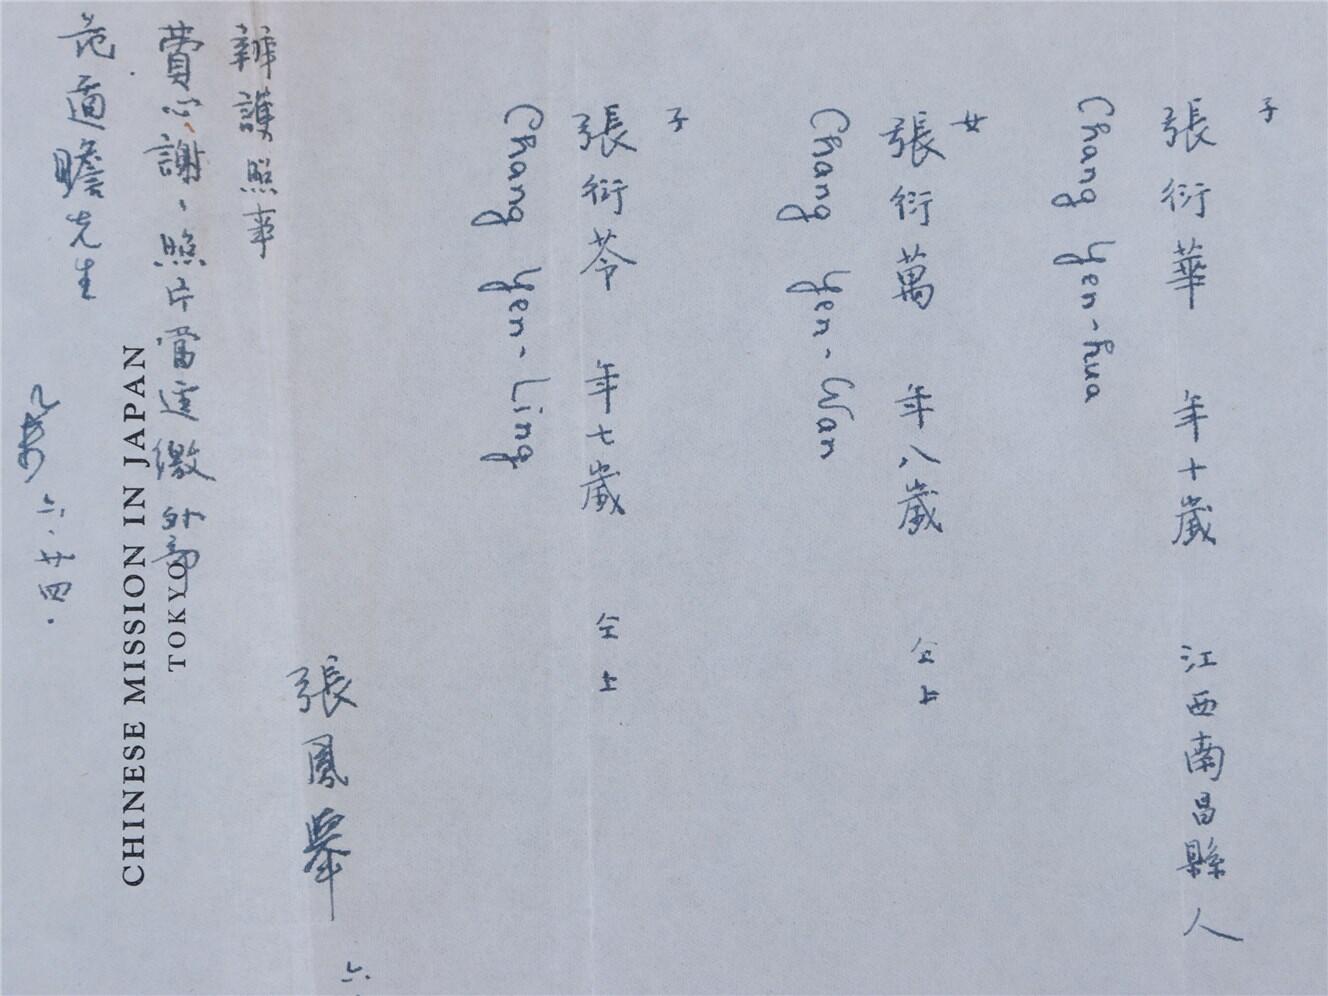 子
張衍華 年十歲 江西南昌縣人
Chang Yen-hua
女
張衍萬 年八歲 仝上
Chang Yen-Wan
子
張衍苓 年七歲 仝上
Chang Yen-Ling
張鳳舉 六.
辦護照事
費心謝、照片當逕繳外部
范 瞻先生
六、廿四.
CHINESE MISSION IN JAPAN
TOKYO